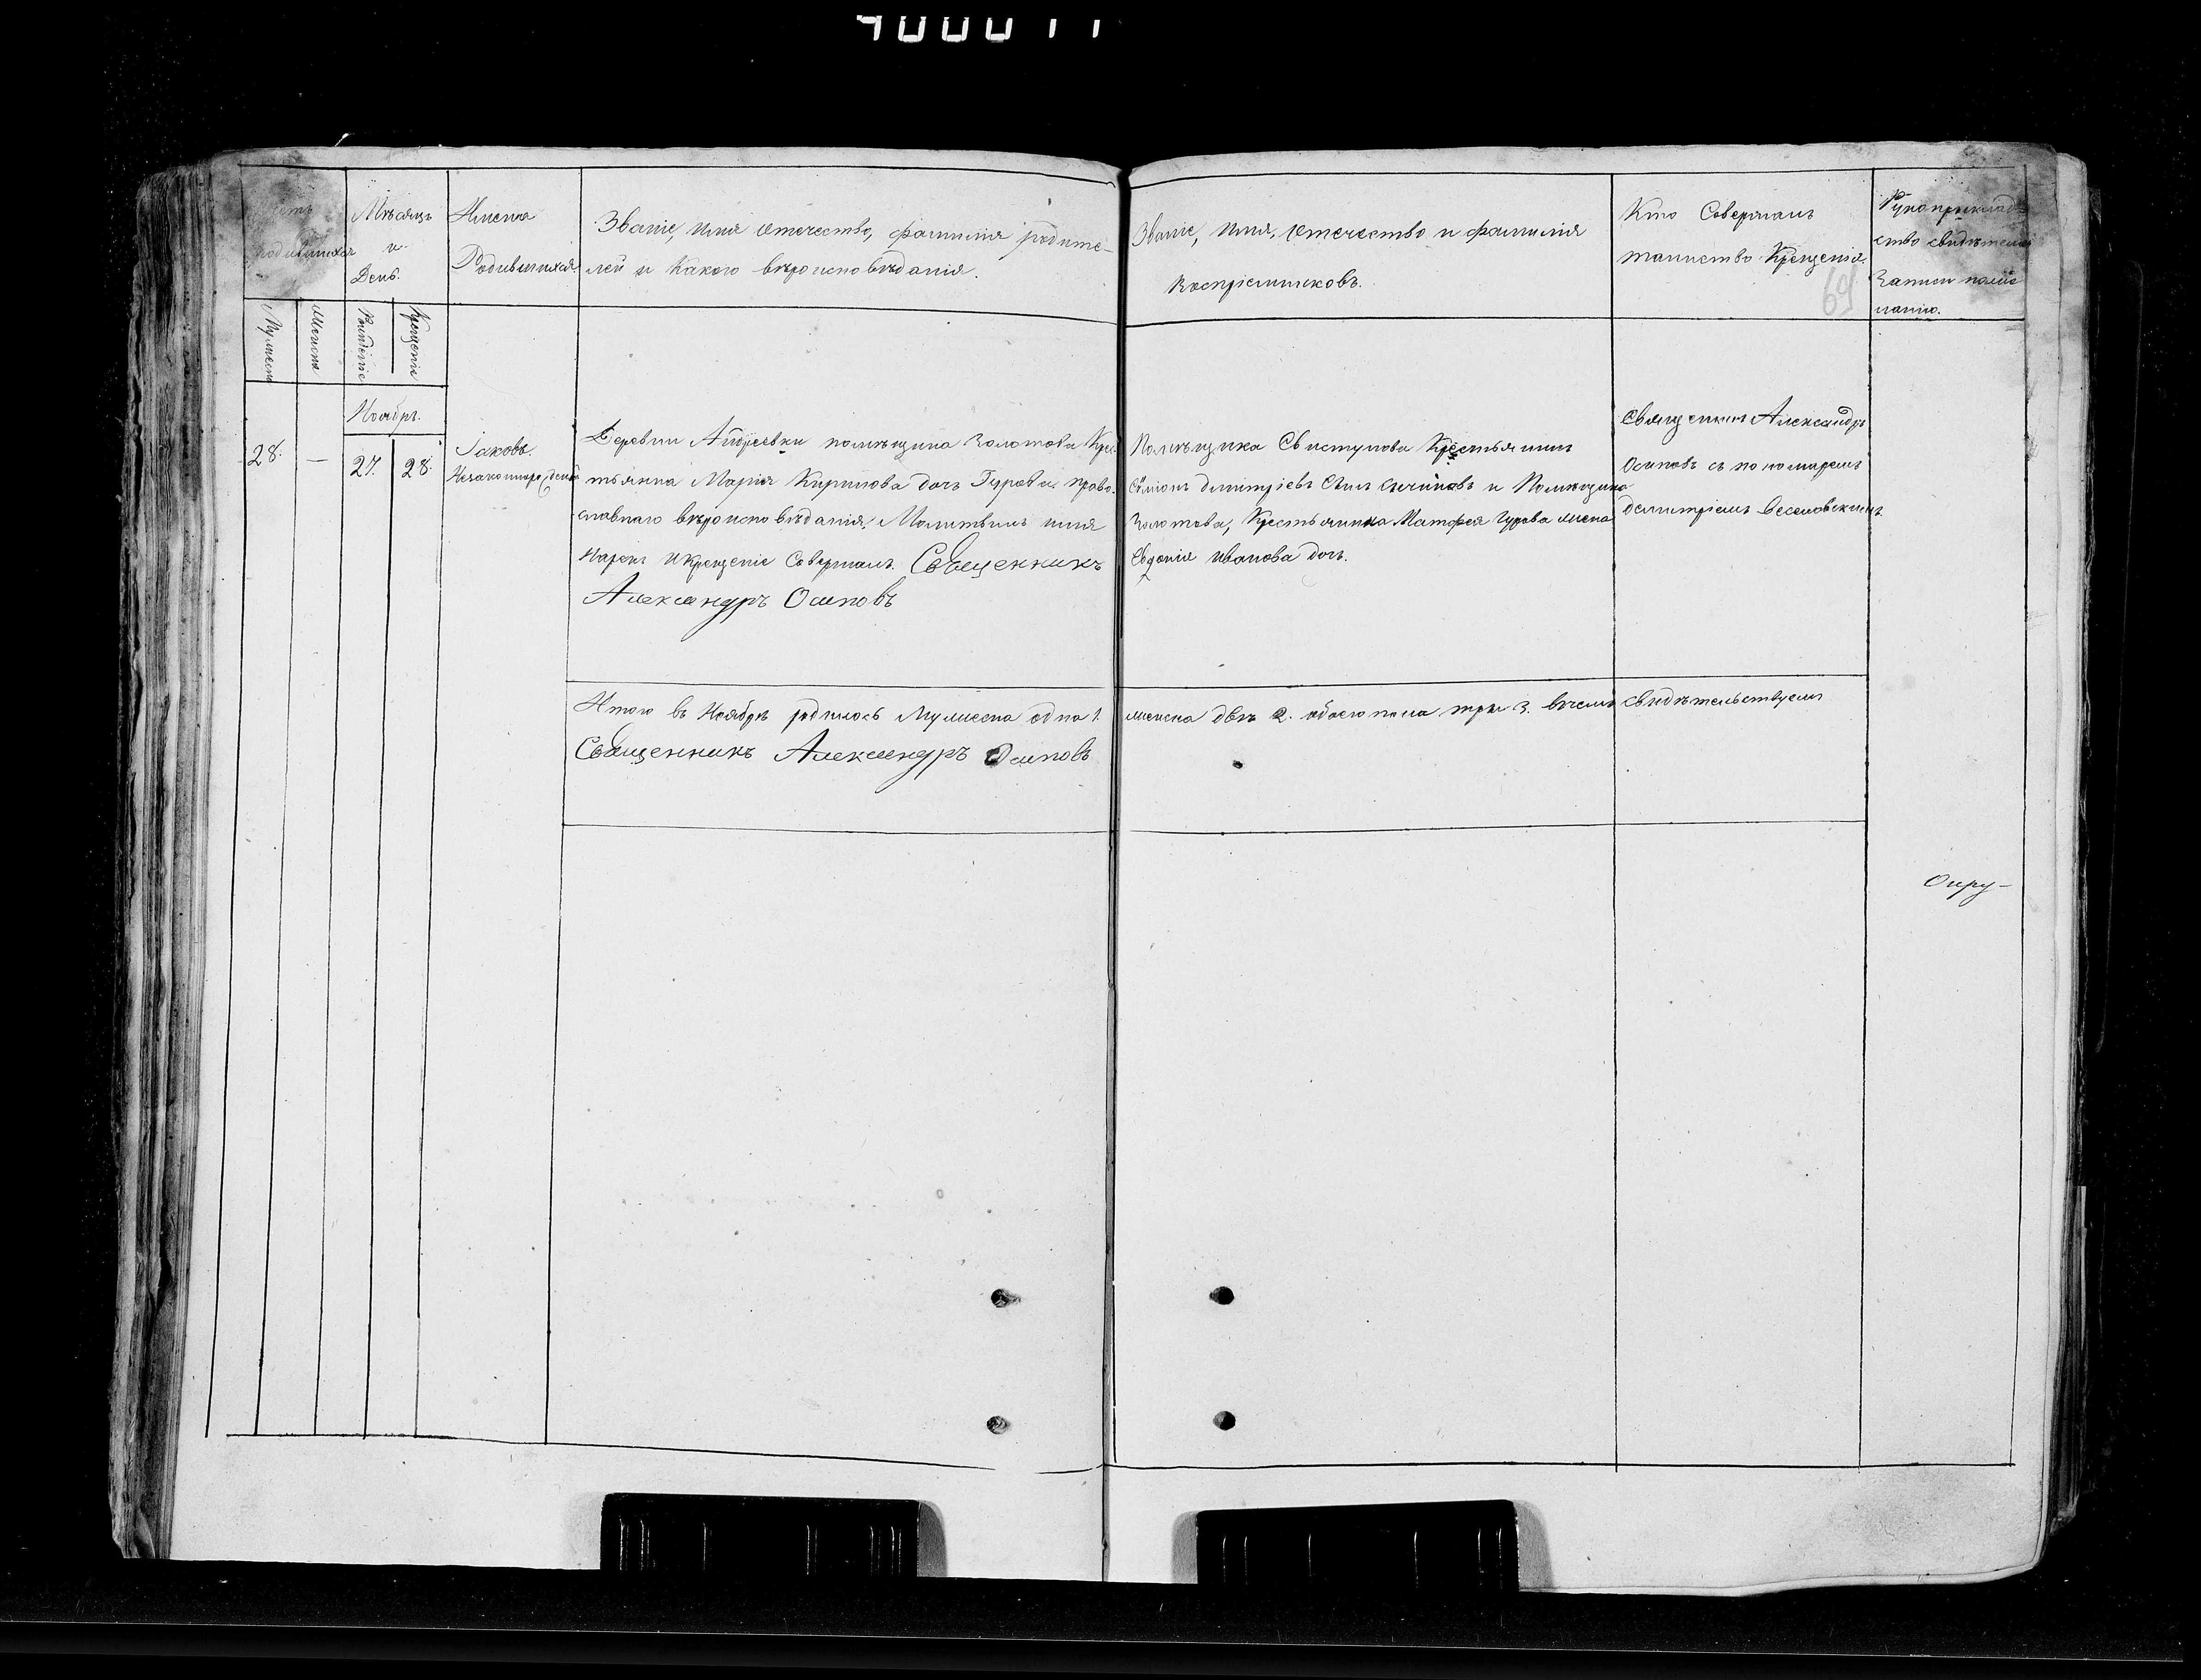 4000011
родившихся
Мѣсяцъ
и
День.
Имена
Родившихся.
Званіе, имя отечество, фамилія родите-
лей и какого вѣроисповѣданія.
Званіе, имя, отечество и фамилія
воспріемниковъ.
Кто Совершалъ
таинство Крещенія.
69
Рукоприклад-
ство свидѣтелей
Записи
Мужеска
Женска
Рожденіе
Крещеніе
Ноябрь.
28.
—
27.
28.
Іаковъ.
Незаконнорожденый
Деревни Андреевки помѣщика Золотова Крес-
тьянка Марія Кирилова дочь Гурова право-
славнаго вѣроисповѣданія. Молитвилъ имя
Нарекъ и крещеніе Совершалъ. Священникъ
Александръ Осиповъ
Помѣщика Свистунова Крестьянинъ
Симіонъ Димитріевъ Сынъ и Помѣщика
Золотова, Крестьянина Матфея Гурова жена
Евдокія Иванова дочь.
Священникъ Александръ
Осиповъ съ пономаремъ
Димитріемъ Веселовскимъ.
Итого въ Ноябрѣ родилось Мужеска одна 1. женска двѣ 2. обоего пола три 3. въ чемъ свидѣтельствуемъ
Священникъ Александръ Осиповъ